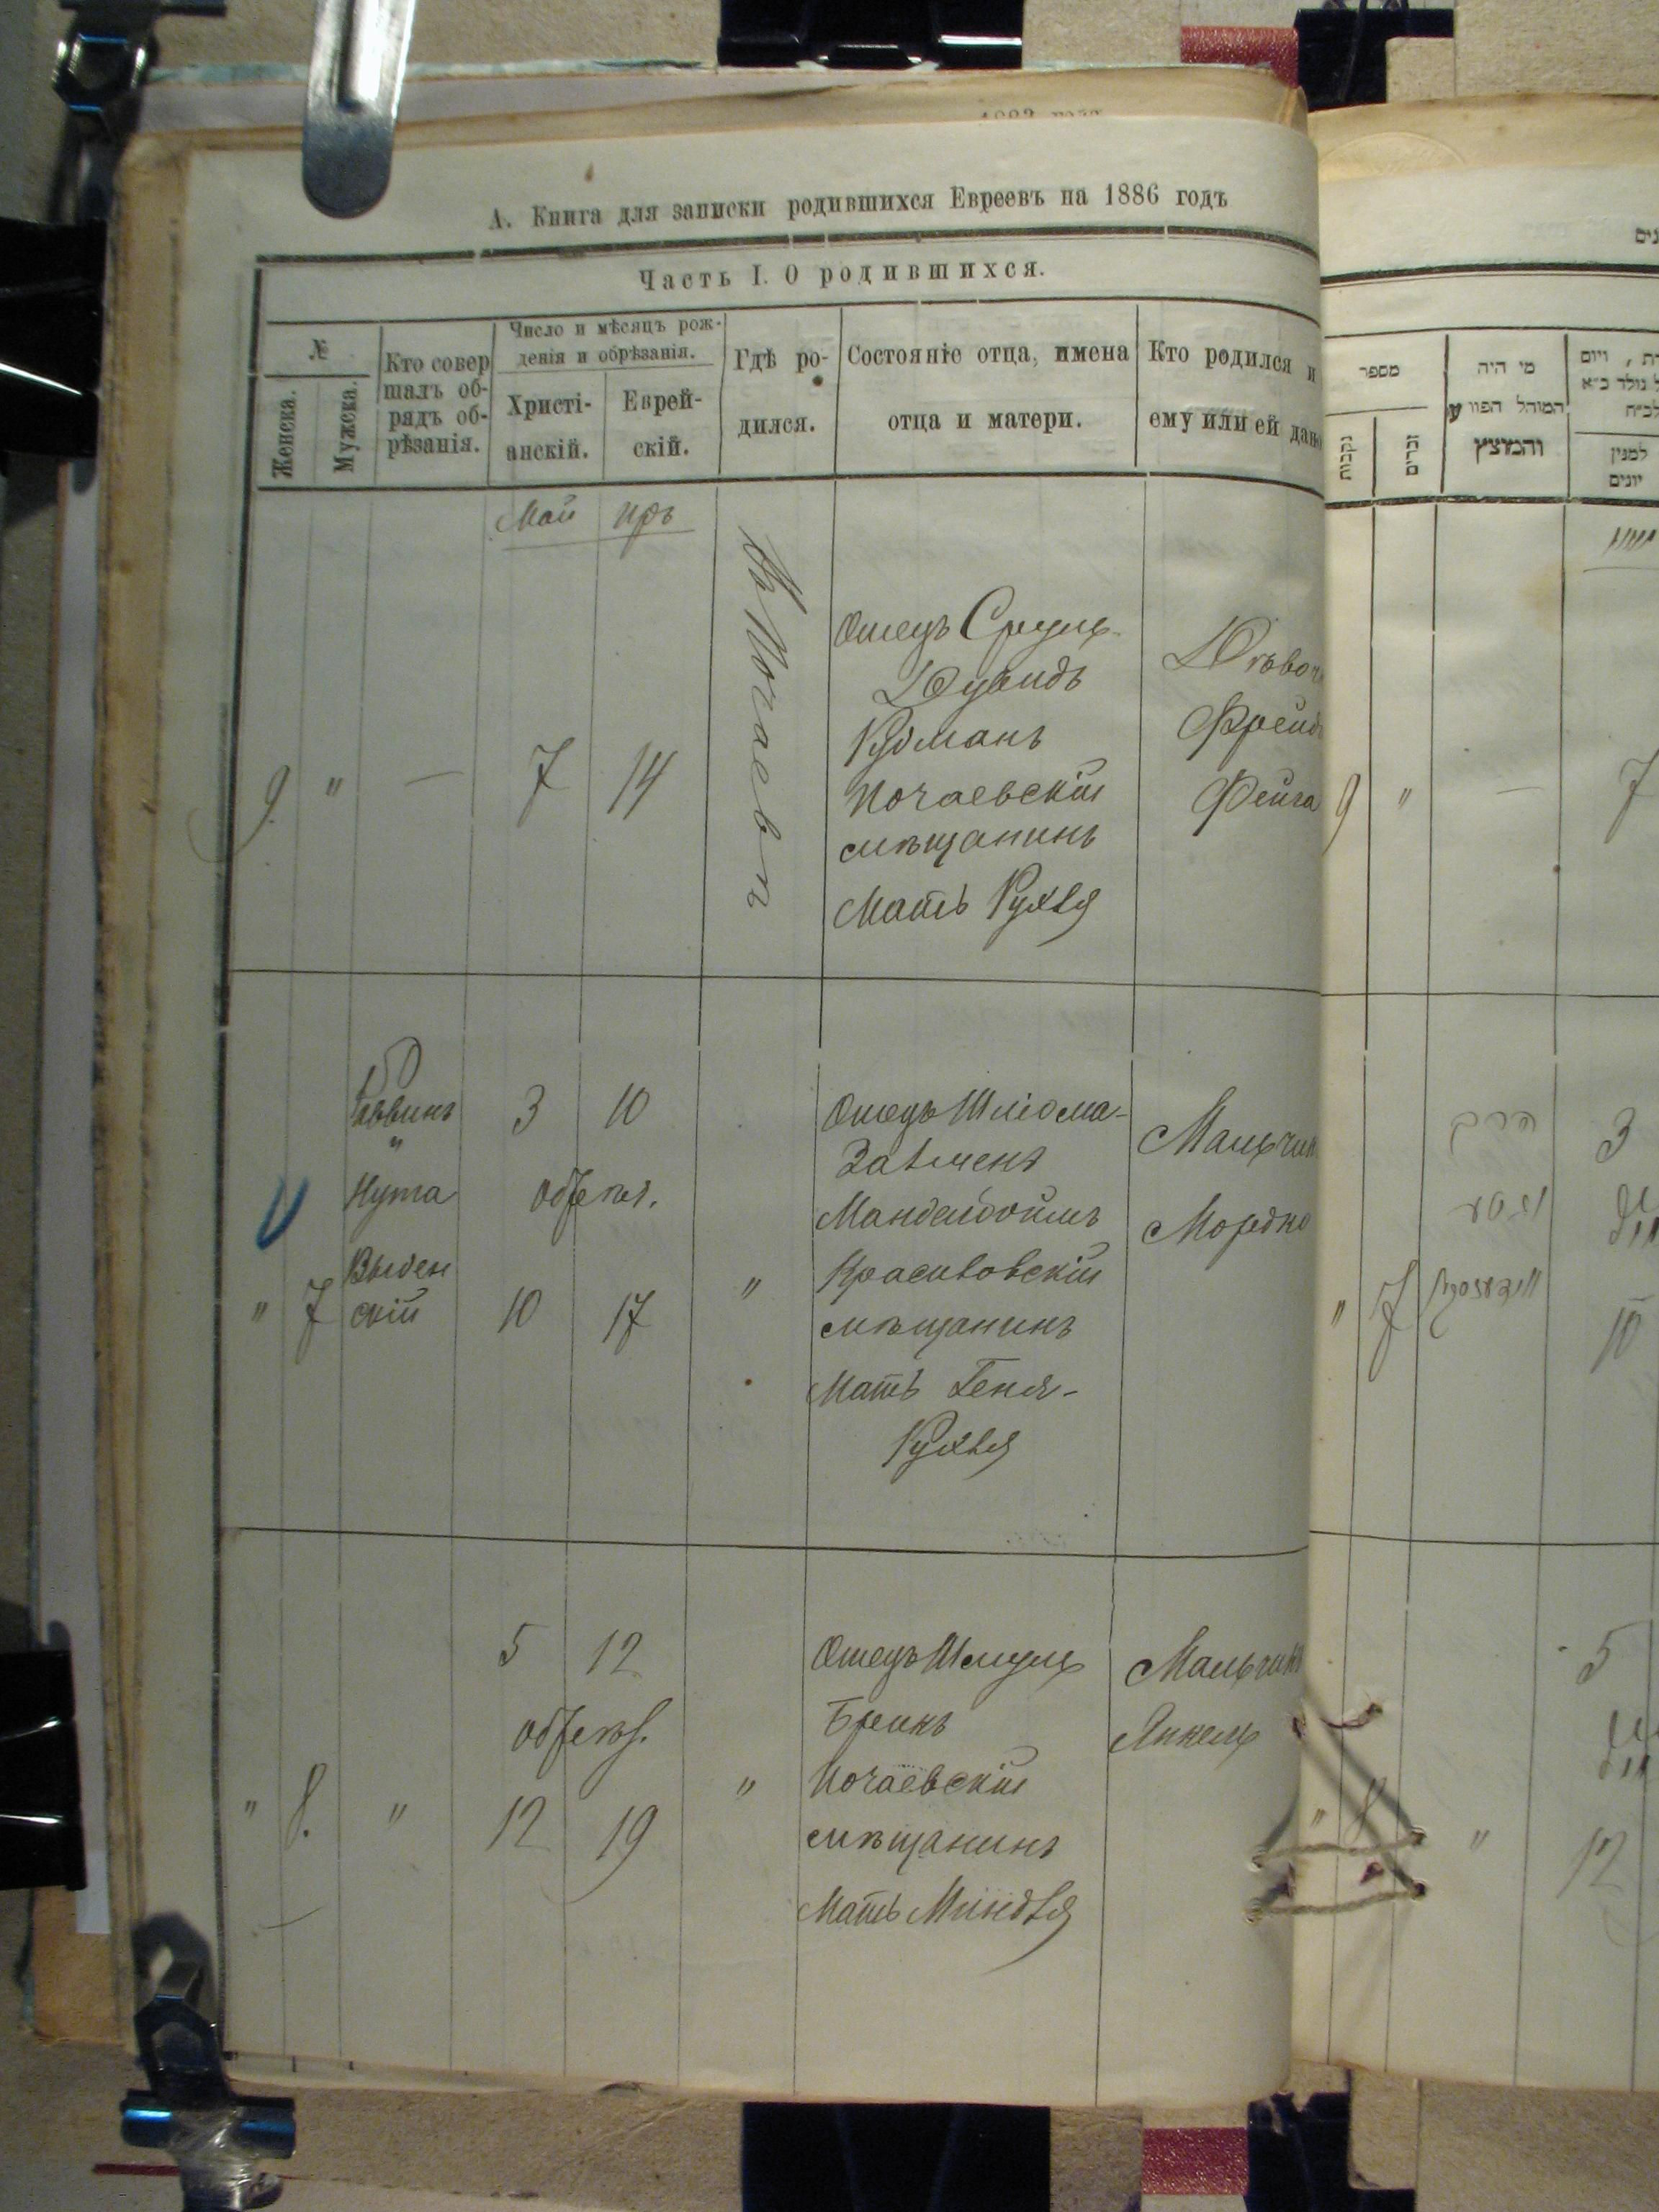 А. Книга для записки родившихся Евреевъ на 1886 годъ
Часть I. О родившихся.
№
Женска.
Мужска.
Кто совер
шалъ об-
рядъ об-
рѣзанія.
Число и мѣсяцъ рож-
денія и обрѣзанія.
Христі-
анскій.
Еврей-
скій.
Гдѣ ро-
дился.
Состояніе отца, имена
отца и матери.
Кто родился и
ему или ей дано
Май
Иръ
9.
"
—
7
14
Въ Почаевѣ
Отецъ Сруль-
Дувидъ
Почаевскій
мѣщанинъ
Мать Рухля
Дѣвочк
Фрейд
Фейга
"
7
Раввинъ
"
Нута
скій
3
10
обрѣз.
10
17
"
Отецъ Шліома-
Залмень
Мандельбоймъ
мѣщанинъ
Мать Геня-
Рухля
Мальчик
Мордко
"
8.
"
5
12
обрѣз.
12
19
"
Отецъ Шмуль
Брикъ
Почаевскій
мѣщанинъ
Мать Миндля
Мальчикъ
Янкель
מספר
נקבות
זכרים
מי היה
המוהל הפורע
והמוצץ
למנין
יונים
9
"
—
7
3
הרב
נטע
"
7
10
5
"
8
"
12